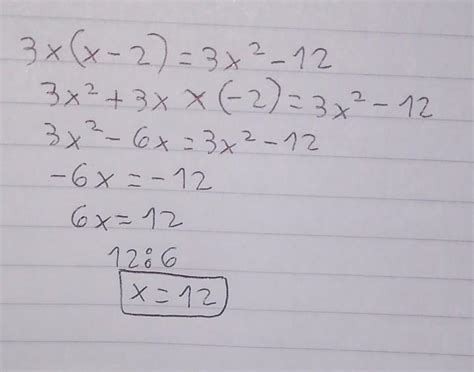 3x(x-2)=3x²-12
3x²+3x×(-2)=3x²-12
3x²-6x=3x²-12
-6x=-12
6x=12
12:6
x=12